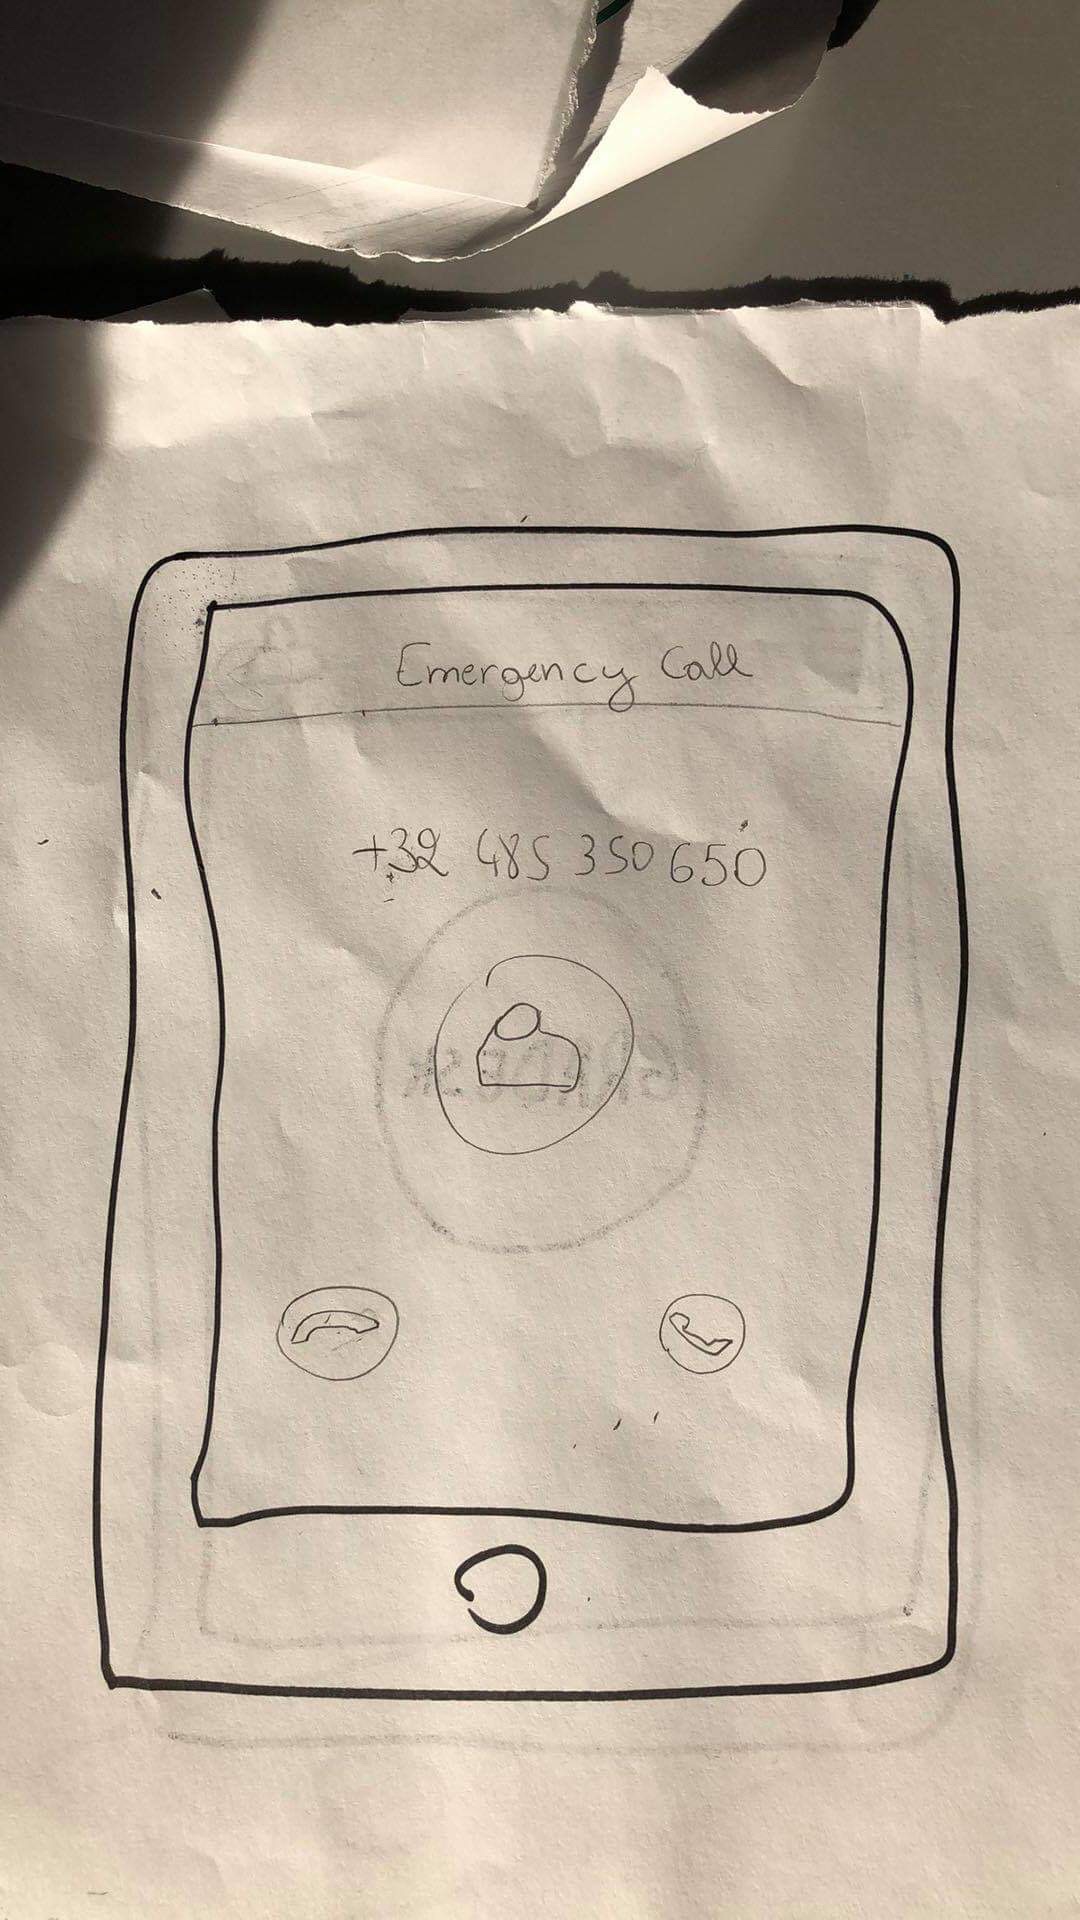 Emergency Call
+32 485 350 650